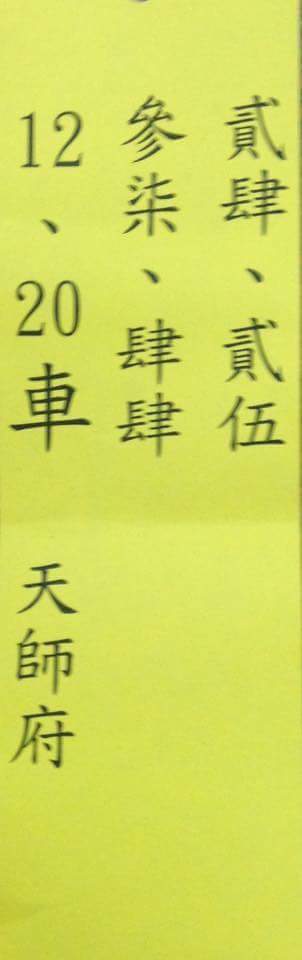 貳肆、貳伍
參柒、肆肆
12、20車 天師府